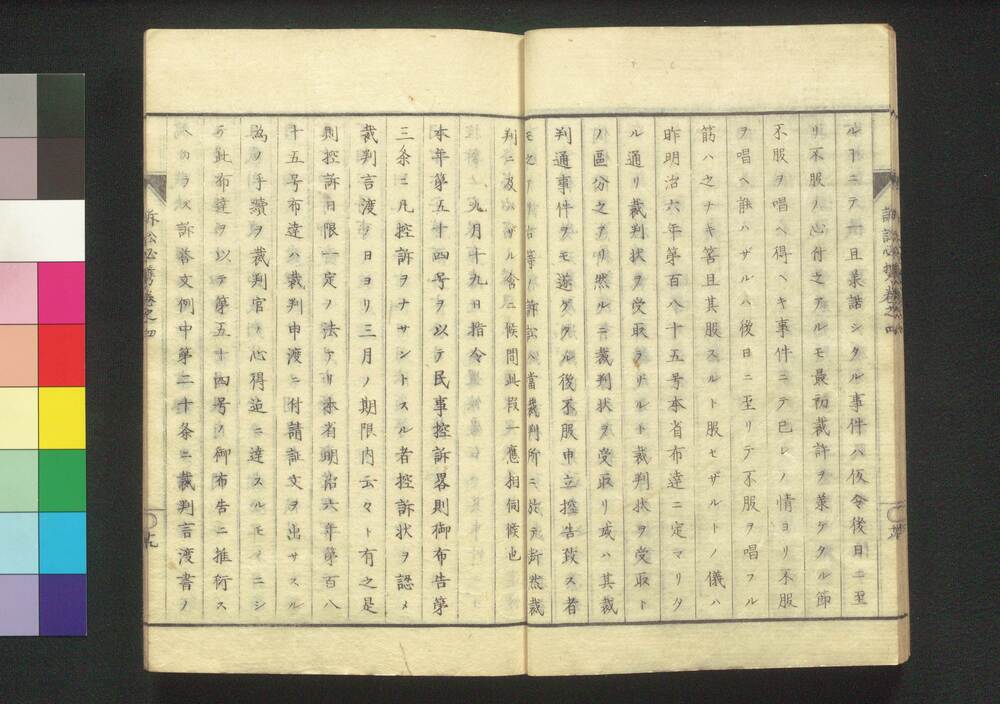 ルトニテ一旦承諾シタル事件ハ仮令後日ニ至
リ不服ノ心付之アルモ最初裁許ヲ藁ケタル節
不服ヲ唱ヘ得ヘキ事件ニテ已レノ情ヨリ不服
ヲ唱ヘ訴ハザルハ後日ニ至リテ不服ヲ唱フル
筋ハ之ナキ筈且其服スルト服セザルトノ儀ハ
昨明治六年第百八十五号本省布達ニ定マリタ
ル通リ裁判状ヲ受取ラザルト裁判状ヲ受取ト
ノ區分之アリ然ルニ裁判状ヲ受取リ或ハ其裁
判通事件ヲモ遂ゲタル後不服申立控告致ス者
等ノ訴訟ハ當裁判所ニ於テ断然裁
判ニ及バザル含ニ候間此段一應相伺候也
九月十九日指令
本年第五十四号ヲ以テ民事控訴畧則御布告第
三条ニ凡控訴ヲナサントスル者控訴状ヲ認メ
裁判言渡ノ日ヨリ三月ノ期限内云々ト有之是
則控訴日限一定ノ法アリ本省明治六年第百八
十五号布達ハ裁判申渡ニ付請証文ヲ出サスル
為ノ手續ヲ裁判官ノ心得迄ニ達スルモノニシ
テ此布達ヲ以テ第五十四号ノ御布告ニ推衍ス
ヘカラス訴答文例中第二十条ニ裁判言渡書ノ
訴訟必携巻之四
十九